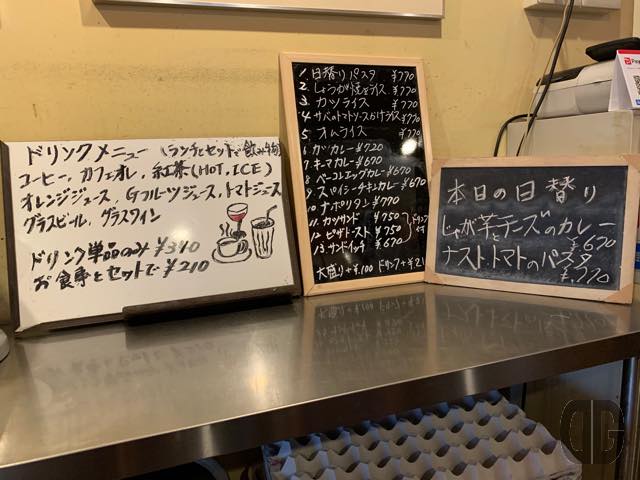 ドリンクメニュー (ランチとセットで飲み物)
コーヒー, カフェオレ, 紅茶(HOT, ICE)
オレンジジュース, Gフルーツジュース, トマトジュース
グラスビール, グラスワイン
ドリンク単品のみ ¥340
お食事とセットで ¥210
1. 日替りパスタ ¥770
2. しょうが焼きライス ¥770
3. カツライス ¥770
4. サバのトマトソースかけライス ¥770
5 オムライス ¥770
6 カツカレー ¥720
7. キーマカレー ¥670
8 ベーコンエッグカレー ¥670
9 スパイシーチキンカレー ¥670
10 ナポリタン ¥770
11. カツサンド ¥750
12 ピザトースト ¥750
13 サンドイッチ ¥670
大盛り+¥100 ドリンク+¥21
本日の日替り
じゃが芋とチーズのカレー
¥670
ナストトマトのパスタ
¥770
DG